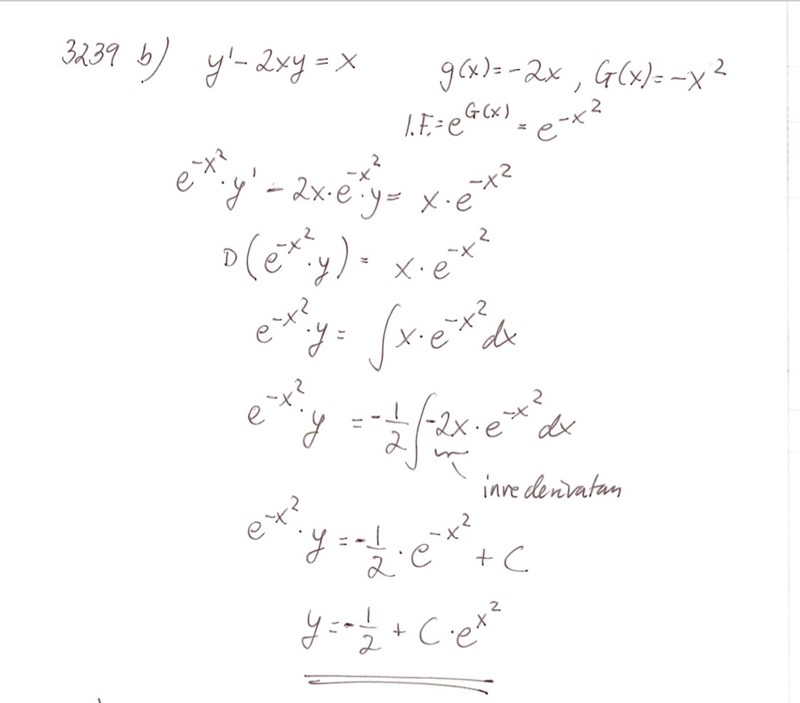 3239 b) y' - 2xy = x g(x) = -2x , G(x) = -x²
I.F. = e^G(x) = e^-x²
e^-x² · y' - 2x · e^-x² · y = x · e^-x²
D(e^-x² · y) = x · e^-x²
e^-x² · y = ∫ x · e^-x² dx
e^-x² · y = -1/2 ∫ -2x · e^-x² dx
inre derivatan
e^-x² · y = -1/2 · e^-x² + C
y = -1/2 + C · e^x²